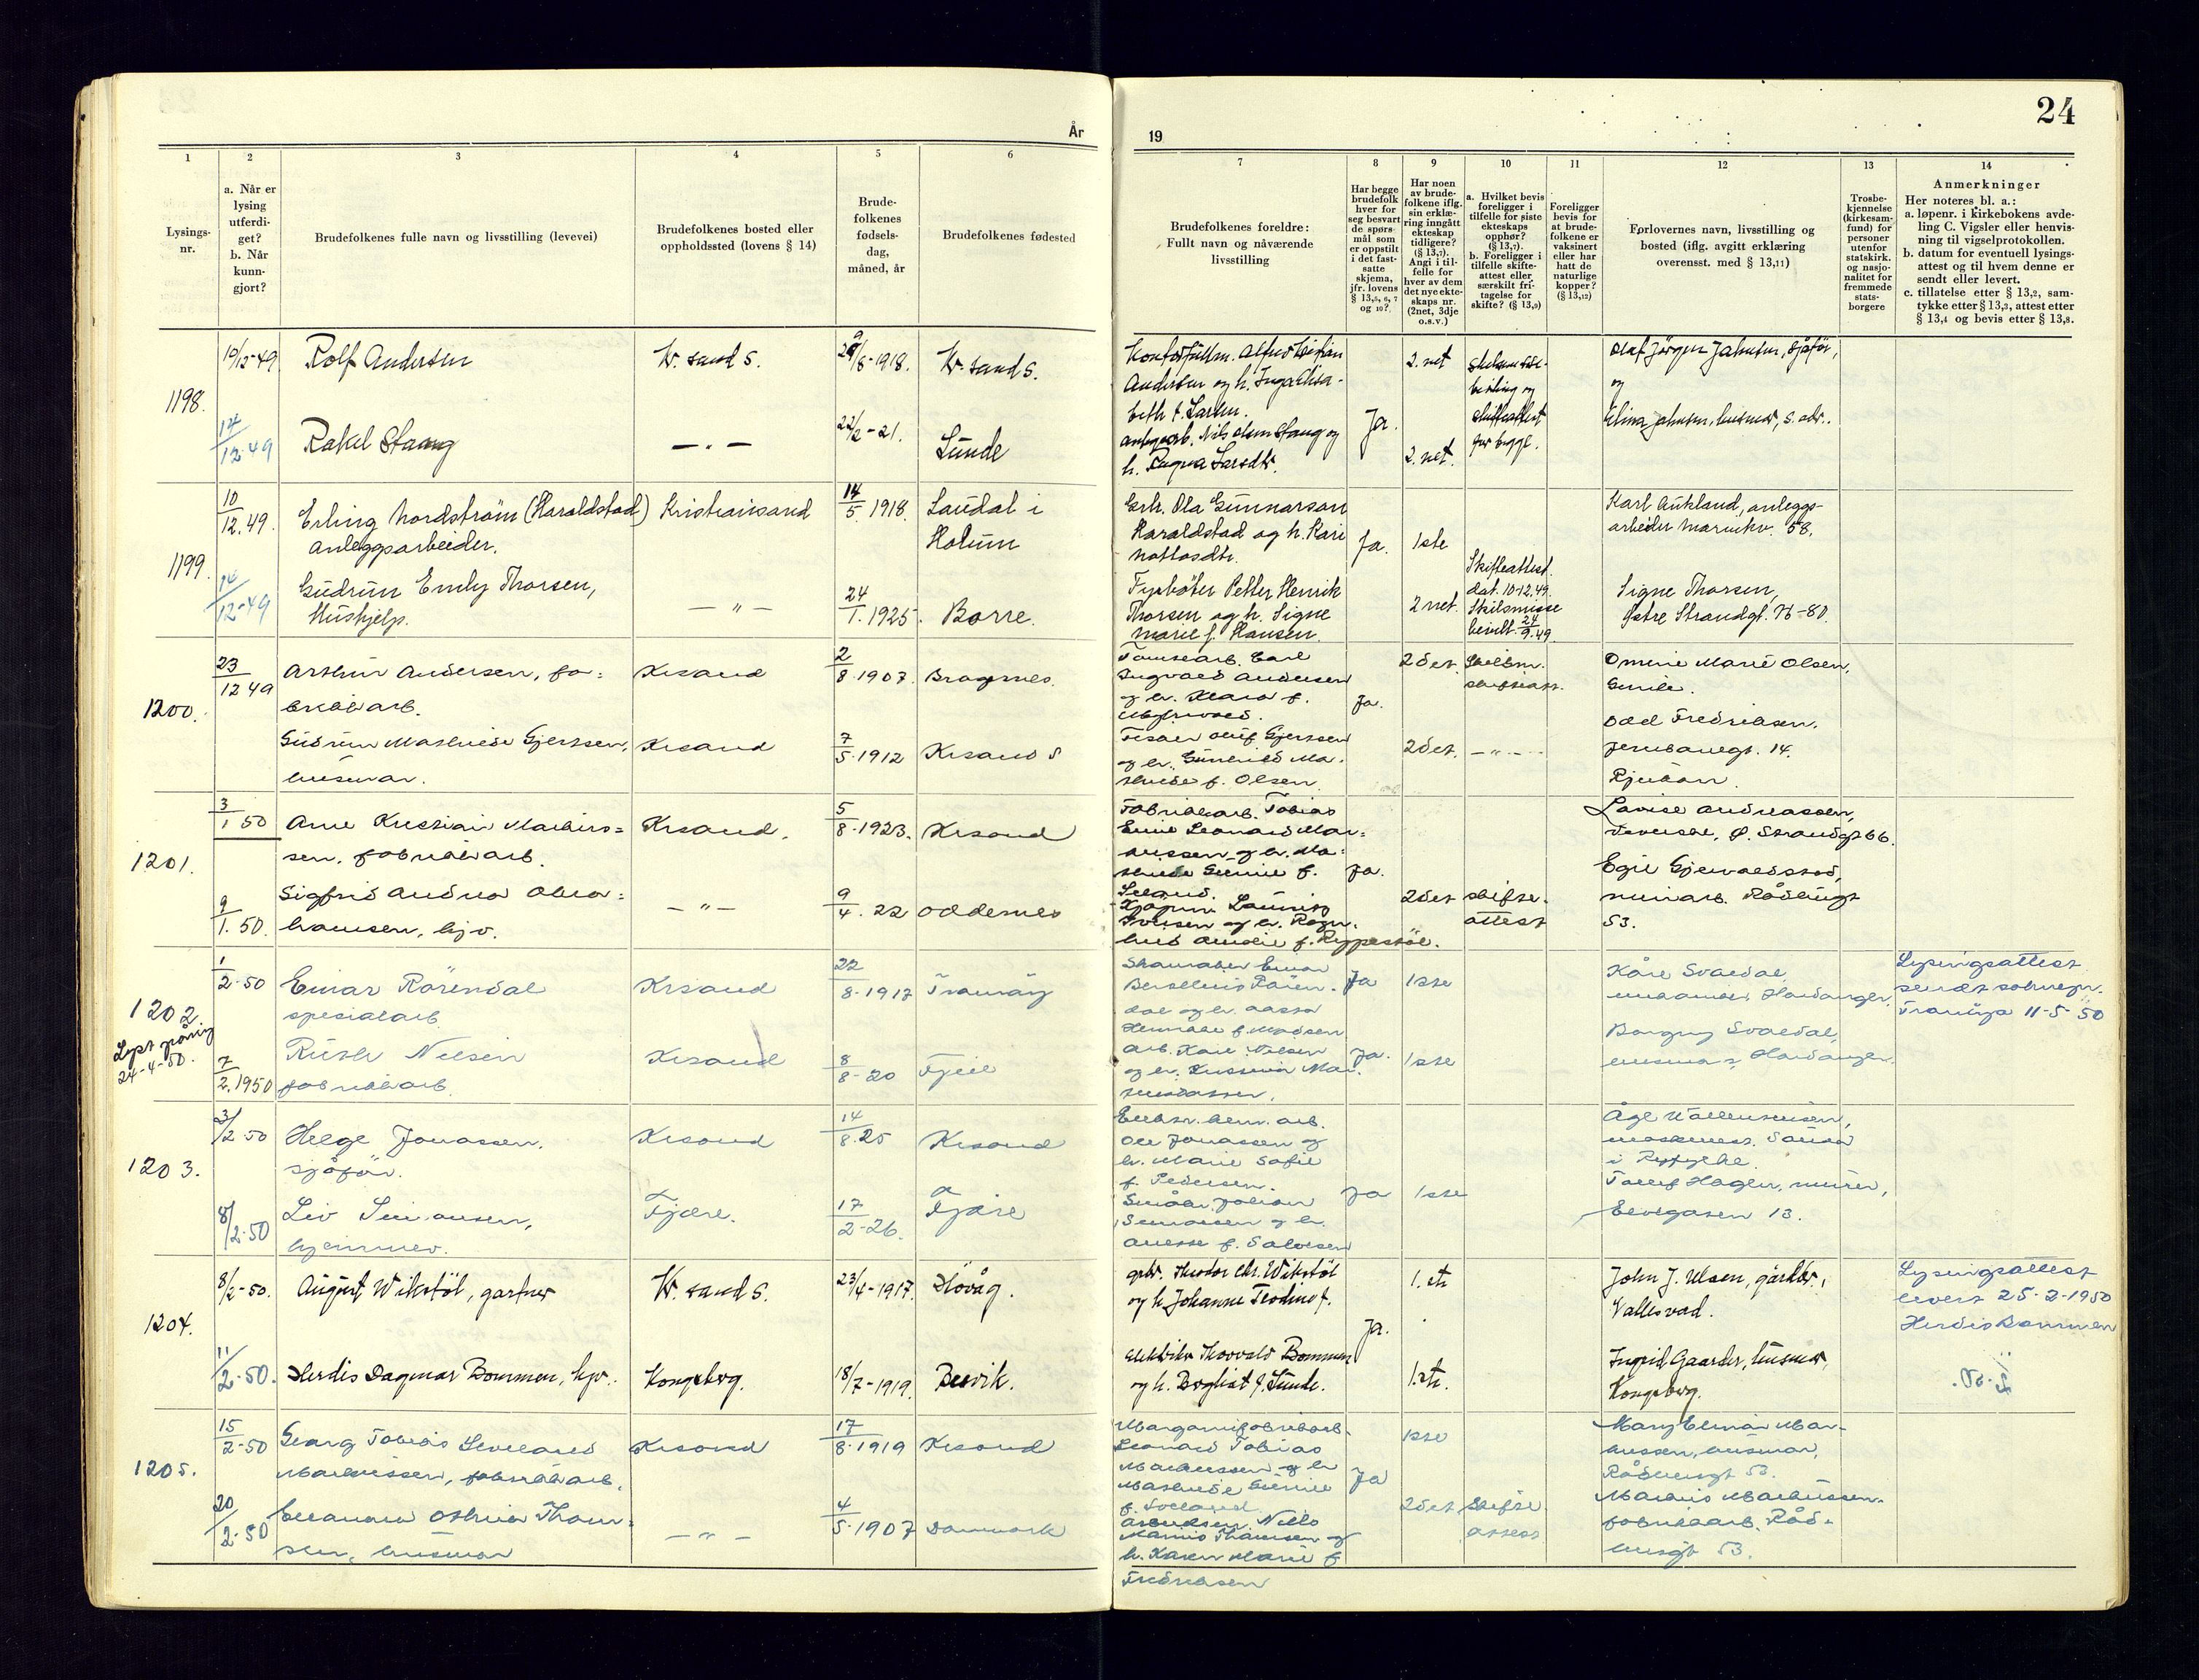 24
År
19
1
2
3
4
5
6
7
8
9
10
11
12
13
14
Lysings-
nr.
a. Når er
lysing
utferdi-
get?
b. Når
kunn-
gjort?
Brudefolkenes fulle navn og livsstilling (levevei)
Brudefolkenes bosted eller
oppholdssted (lovens § 14)
Brude-
folkenes
fødsels-
dag,
måned, år
Brudefolkenes fødested
Brudefolkenes foreldre:
Fullt navn og nåværende
livsstilling
Har begge
brudefolk
hver for
seg besvart
de spørs-
mål som
er oppstilt
i det fast-
satte
skjema,
jfr. lovens
§ 13,5, 6, 7
og 10?
Har noen
av brude-
folkene iflg.
sin erklæ-
ring inngått
ekteskap
tidligere?
(§ 13,7).
Angi i til-
felle for
hver av dem
det nye ekte-
skaps nr.
(2net, 3dje
o.s.v.)
a. Hvilket bevis
foreligger i
tilfelle for siste
ekteskaps
opphør?
(§ 13,7).
b. Foreligger i
tilfelle skifte-
attest eller
særskilt fri-
tagelse for
skifte? (§ 13,9)
Foreligger
bevis for
at brude-
folkene er
vaksinert
eller har
hatt de
naturlige
kopper?
(§ 13,12)
Forlovernes navn, livsstilling og
bosted (iflg. avgitt erklæring
overensst. med § 13,11)
Trosbe-
kjennelse
(kirkesam-
fund) for
personer
utenfor
statskirk.
og nasjo-
nalitet for
fremmede
stats-
borgere
Anmerkninger
Her noteres bl. a.:
a. løpenr. i kirkebokens avde-
ling C. Vigsler eller henvis-
ning til vigselprotokollen.
b. datum for eventuell lysings-
attest og til hvem denne er
sendt eller levert.
c. tillatelse etter § 13,2, sam-
tykke etter § 13,3, attest etter
§ 13,4 og bevis etter § 13,8.
1198.
10/12-49
Rolf Andersen
Kr. sand S.
/8-1918.
Kr. sand S.
Andersen og h. Inga Elisa-
beth f. Larsen.
Ja.
2. net
og
skifteattest
for begge.
Olaf Jørgen Jahnsen, sjåfør,
og
Elina Jahnsen, husmor, s. adr..
14/12-49
Rakel Staang
— . —
22/2-21.
Sunde
anleggsarb. Nils Olsen Stang og
h. Ragna Larsdtr.
2. net.
1199.
10/12.49.
Erling Nordstrøm (Haraldstad)
anleggsarbeider.
Kristiansand
14/5.1918.
Laudal i
Holum
Grbr. Ola Gunnarson
Haraldstad og h. Kari
Ja.
1ste
Karl Aukland, anleggs-
arbeider Marviksv. 58.
14/12-49
Gudrun Emly Thorsen,
Hushjelp.
— " —
24/1.1925.
Borre.
Fyrbøter Petter Henrik
Thorsen og h. Signe
Marie f. Hansen.
2 net.
Skifteattest
dat. 10-12.49.
Skilsmisse
bevilt. 24/9.49.
Signe Thorsen,
Østre Strandgt. 76-80.
1200.
23/12 49
Arthur Andersen, fa=
brikkarb.
Krsand
2/8.1907.
Bragernes.
Tomtearb. Carl
Ingvald Andersen
og h. Klara f.
Ja.
2det
Skilsm.
skifteatt.
Omine Marie Olsen,
Gudrun Mathilde Gjertsen,
husmor.
Krsand
7/5.1912
Krsand S
Fisker Oluf Gjertsen
og h. Gunhild Ma-
thilde f. Olsen.
2det.
— " —
Odd Fredriksen.
Jernbanegt. 14.
Rjukan
1201.
3/1 50
Arne Kristian Markus=
sen, fabrikkarb.
Krsand.
5/8.1923.
Krsand
Fabrikkarb. Tobias
Emil Leonard Mar-
kussen og h. Ma-
thilde Gurine f.
Ja.
Lovise Andreassen,
9/1. 50.
Sigfrid Andrea Abra=
hamsen, hjv.
— " —
9/4. 22
Oddernes
Iversen og h. Ragn-
hild Amalie f. Reppestøl.
2det
skifte-
attest
Egil Gjervaldstad,
murarb. Rådhusgt
53.
1202.
Lyst påny
24-4-50.
1/2-50
Einar Rørendal
spesialarb.
Krsand
22/8-1917
Tromøy
Ja
1ste
Kåre Svaldal,
Hardanger.
Lysingsattest
sendt soknepr.
Tromøya 11-5-50
7/2.1950
Ruth Nilsen
fabrikkarb.
Krsand
8/8-20
Arb. Karl Nilsen
Ja.
1ste
Borgny Svaldal,
husmor, Hardanger.
1203.
3/2 50
Helge Jonassen.
sjåfør.
Krsand
14/8.25
Krsand
Ole Jonassen og
h. Marie Sofie
f. Pedersen.
i Ryfylke.
8/2.50
hjemmev.
Fjære.
17/2-26.
Fjære
f. Salvesen
Ja
1ste
Tallef Hagen, murer,
Elvegaten 13.
1204.
8/2-50.
August Wikstøl, gartner
Kr. sand S.
23/4-1917.
Høvåg.
gbr. Theodor Chr. Wikstøl
og h. Johanne Teodine f.
Ja.
1. ste
John J. Ulsen, gårdbr.,
Vallesvad.
Lysingsattest
levert 25-2-1950
Herdis Bommen
11/2-50.
Herdis Dagmar Bommen, hjv.
Kongsberg.
18/7-1919.
Besvik.
Elektriker Thorvald Bommen
og h. Borghild f. Sunde.
1.ste.
Ingrid Gaarder, husmor,
Kongsberg.
1205.
15/2-50
Georg Tobias Leveland
Markussen, fabrikkarb.
Krsand
17/8-1919
Krsand
Margarinfabrikarb.
Leonard Tobias
Markussen og h
Mathilde Gurine
f. Soeland.
Ja
1ste
Mary Elinor Mar-
kussen, husmor,
Rådhusgt 53.
20/2-50
Eleanora Othilia Thom=
sen, husmor
— " —
4/5.1907
Danmark
Arbeidsm. Nills
Marius Thomsen og
h. Karen Marie f
Fredriksen
2det
skifte
attest
Markus Markussen.
fabrikkarb. Råd-
husgt 53.